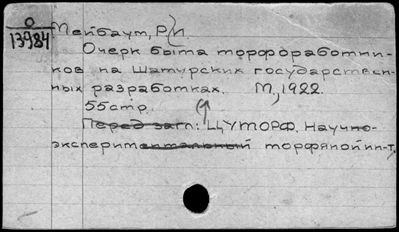 О
13984
Мейбаум, Р.И.
Очерк быта торфоработни-
ков на Шатурских государствен-
ных разработках. М, 1922.
55стр.
Перед загл: ЦУТОРФ. Научно-
эксперментальный торфянойин-т.